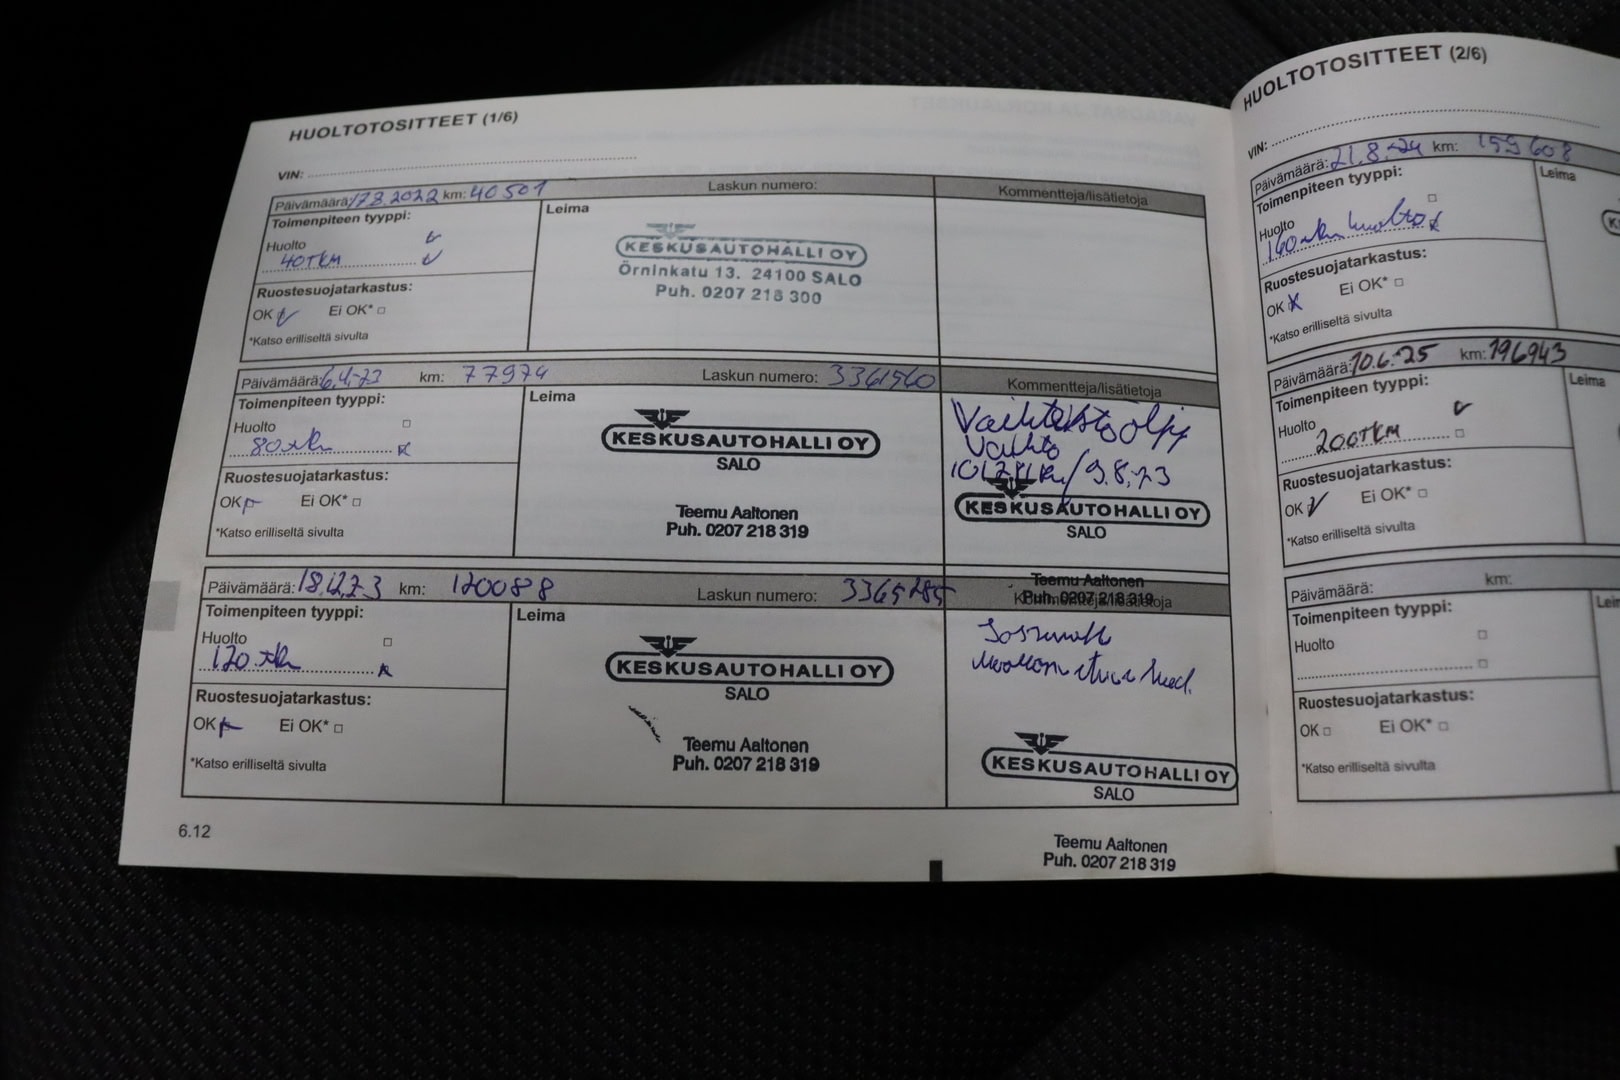 HUOLTOTOSITTEET (1/6)
VIN:
Päivämäärä: 17.8.2022 km: 40 501 Laskun numero: Kommentteja/lisätietoja
Toimenpiteen tyyppi: Leima
Huolto
40TKM
KESKUSAUTOHALLI OY
Örninkatu 13. 24100 SALO
Puh. 0207 218 300
Ruostesuojatarkastus:
OK Ei OK*
*Katso erilliseltä sivulta
Päivämäärä: 6.4.-23 km: 77974 Laskun numero: 3361560 Kommentteja/lisätietoja
Toimenpiteen tyyppi: Leima
Huolto
80 tkm
KESKUSAUTOHALLI OY
SALO
Teemu Aaltonen
Puh. 0207 218 319
Vaihteistoöljy
Vaihto
/9.8.-23
KESKUSAUTOHALLI OY
SALO
Teemu Aaltonen
Puh. 0207 218 319
Ruostesuojatarkastus:
OK Ei OK*
*Katso erilliseltä sivulta
Päivämäärä: 18.12.23 km: 120088 Laskun numero: 3365285 Kommentteja/lisätietoja
Toimenpiteen tyyppi: Leima
Huolto
120 tkm
KESKUSAUTOHALLI OY
SALO
Teemu Aaltonen
Puh. 0207 218 319
KESKUSAUTOHALLI OY
SALO
Teemu Aaltonen
Puh. 0207 218 319
Ruostesuojatarkastus:
OK Ei OK*
*Katso erilliseltä sivulta
6.12
HUOLTOTOSITTEET (2/6)
VIN:
Päivämäärä: 21.8.-24 km: 159 608
Toimenpiteen tyyppi: Leima
Huolto
160 tkm huolto
Ruostesuojatarkastus:
OK Ei OK*
*Katso erilliseltä sivulta
Päivämäärä: 10.6.-25 km: 196943
Toimenpiteen tyyppi: Leima
Huolto
200TKM
Ruostesuojatarkastus:
OK Ei OK*
*Katso erilliseltä sivulta
Päivämäärä: km:
Toimenpiteen tyyppi:
Huolto
Ruostesuojatarkastus:
OK Ei OK*
*Katso erilliseltä sivulta